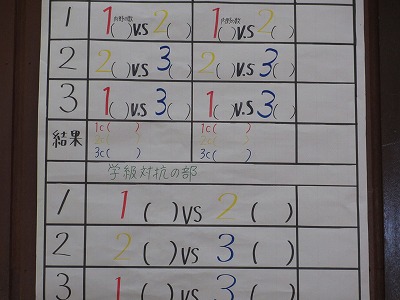 1 1( )V.S 2( ) 1( )V.S 2( )
2 2( )V.S 3( ) 2( )V.S 3( )
3 1( )V.S 3( ) 1( )V.S 3( )
結果 1c( ) 1c( )
2c( ) 2c( )
3c( ) 3c( )
学級対抗の部
1 1 ( ) VS 2 ( )
2 2 ( ) VS 3 ( )
3 1 ( ) VS 3 ( )